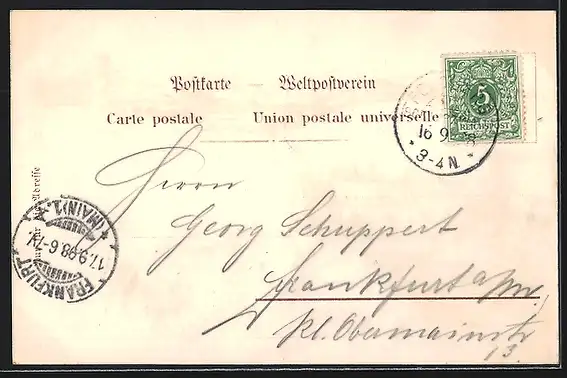 Postkarte — Weltpostverein
Carte postale — Union postale universelle
5
REICHSPOST
16 9
3-4N.
Herrn
Georg Schuppert
Frankfurt a/M.
kl. Obermainstr
13.
FRANKFURT
17.9.98.6-7V.
(MAIN) 1.
Nur für die Adresse